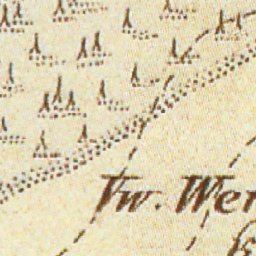 Tw. Wer